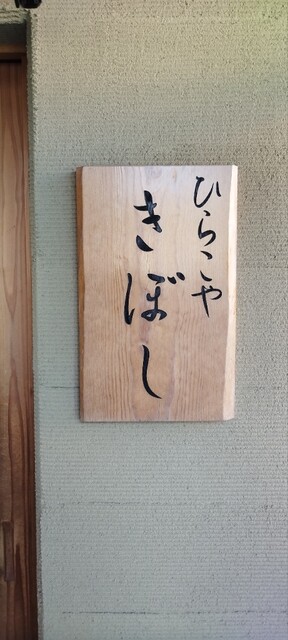 ひらこや
きぼし